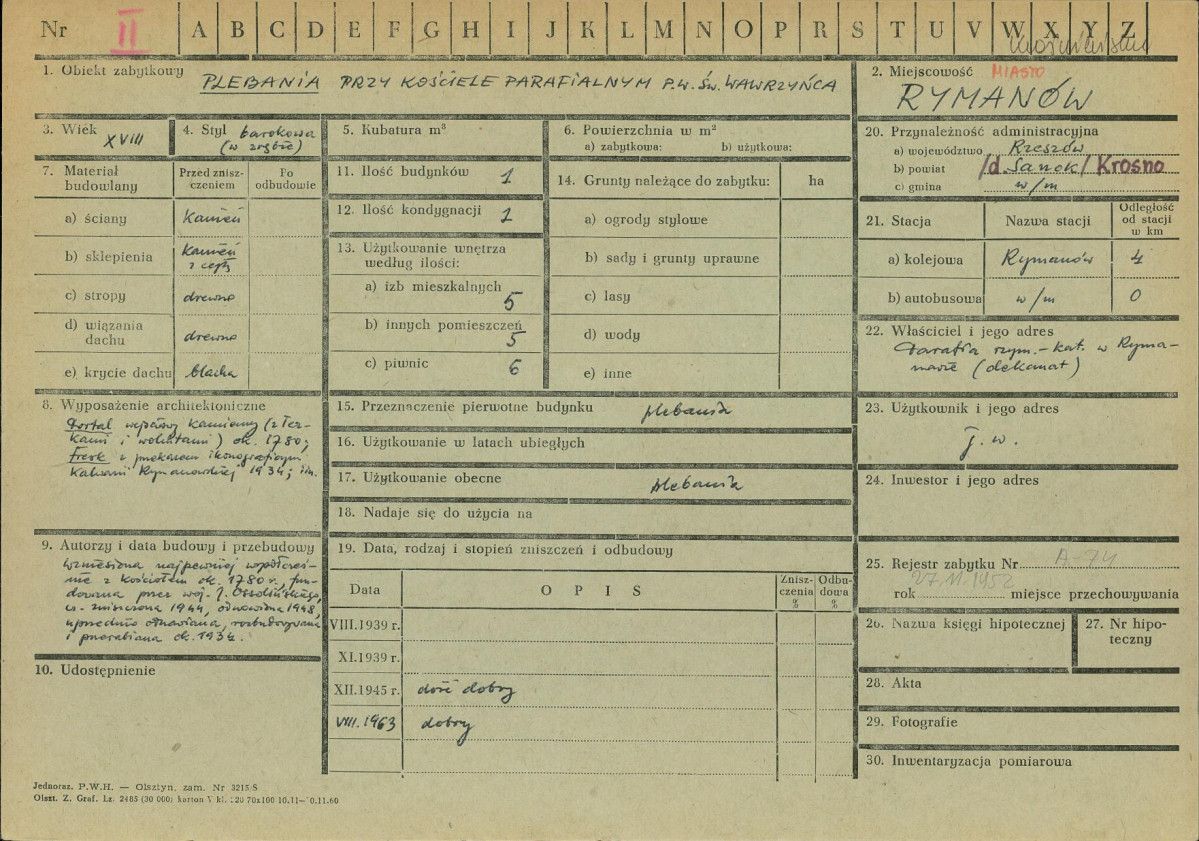 Nr II A B C D E F G H I J K L M N O P R S T U V W X Y Z
1. Obiekt zabytkowy
PLEBANIA PRZY KOŚCIELE PARAFIALNYM P.W. ŚW. WAWRZYŃCA
2. Miejscowość MIASTO
RYMANÓW
3. Wiek
XVIII
4. Styl barokowa
(w zrębie)
5. Kubatura m³
6. Powierzchnia w m²
a) zabytkowa: b) użytkowa:
20. Przynależność administracyjna
a) województwo Rzeszów
b) powiat /d. Sanok/ Krosno
c) gmina w/m
7. Materiał budowlany
Przed zniszczeniem
Po odbudowie
a) ściany kamień
b) sklepienia kamień
z cegłą
c) stropy drewno
d) wiązania dachu drewno
e) krycie dachu blacha
11. Ilość budynków 1
12. Ilość kondygnacji 1
13. Użytkowanie wnętrza
według ilości:
a) izb mieszkalnych 5
b) innych pomieszczeń 5
c) piwnic 6
14. Grunty należące do zabytku: ha
a) ogrody stylowe
b) sady i grunty uprawne
c) lasy
d) wody
e) inne
21. Stacja Nazwa stacji Odległość od stacji w km
a) kolejowa Rymanów 4
b) autobusowa w/m 0
22. Właściciel i jego adres
Parafia rzym.-kat. w Ryma-
nowie (dekanat)
8. Wyposażenie architektoniczne
Portal wejściowy kamienny (z łez-
kami i wolutami) ok. 1780;
Fresk z przekazem ikonograficznym
Kalwarii Rymanowskiej 1934; in.
15. Przeznaczenie pierwotne budynku plebania
16. Użytkowanie w latach ubiegłych
17. Użytkowanie obecne plebania
18. Nadaje się do użycia na
23. Użytkownik i jego adres
j. w.
24. Inwestor i jego adres
9. Autorzy i data budowy i przebudowy
Wzniesiona najpewniej współcześ-
nie z kościołem ok. 1780 r., fun-
dowana przez woj. J. Ossolińskiego,
zniszczona 1944, odnowiona 1948,
uprzednio odnawiana, rozbudowywana
i przerabiana ok. 1934.
10. Udostępnienie
19. Data, rodzaj i stopień zniszczeń i odbudowy
Data OPIS Zniszczenia % Odbudowa %
VIII.1939 r.
XI.1939 r.
XII.1945 r. dość dobry
VIII.1963 dobry
25. Rejestr zabytku Nr A-74
rok 27.11.1952 miejsce przechowywania
26. Nazwa księgi hipotecznej
27. Nr hipoteczny
28. Akta
29. Fotografie
30. Inwentaryzacja pomiarowa
Jednoraz. P.W.H. — Olsztyn, zam. Nr 3215/S
Olszt. Z. Graf. Lz. 2485 (30 000) karton V kl. 220 70x100 10.11—10.11.60